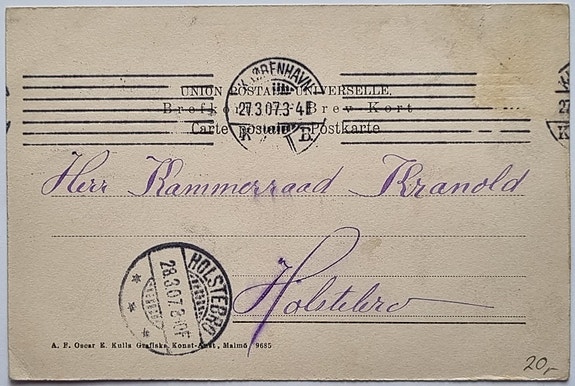 KØBENHAVN
27.3.07.3-4E
K. B.
UNION POSTALE UNIVERSELLE.
Brefkort - Brev-Kort
Carte postale - Postkarte
Herr Kammerraad Kranold
Holstebro
HOLSTEBRO
28.3.07.
A. F. Oscar E. Kulls Grafiska Konst-Anst., Malmö 9685
20,-
27
K